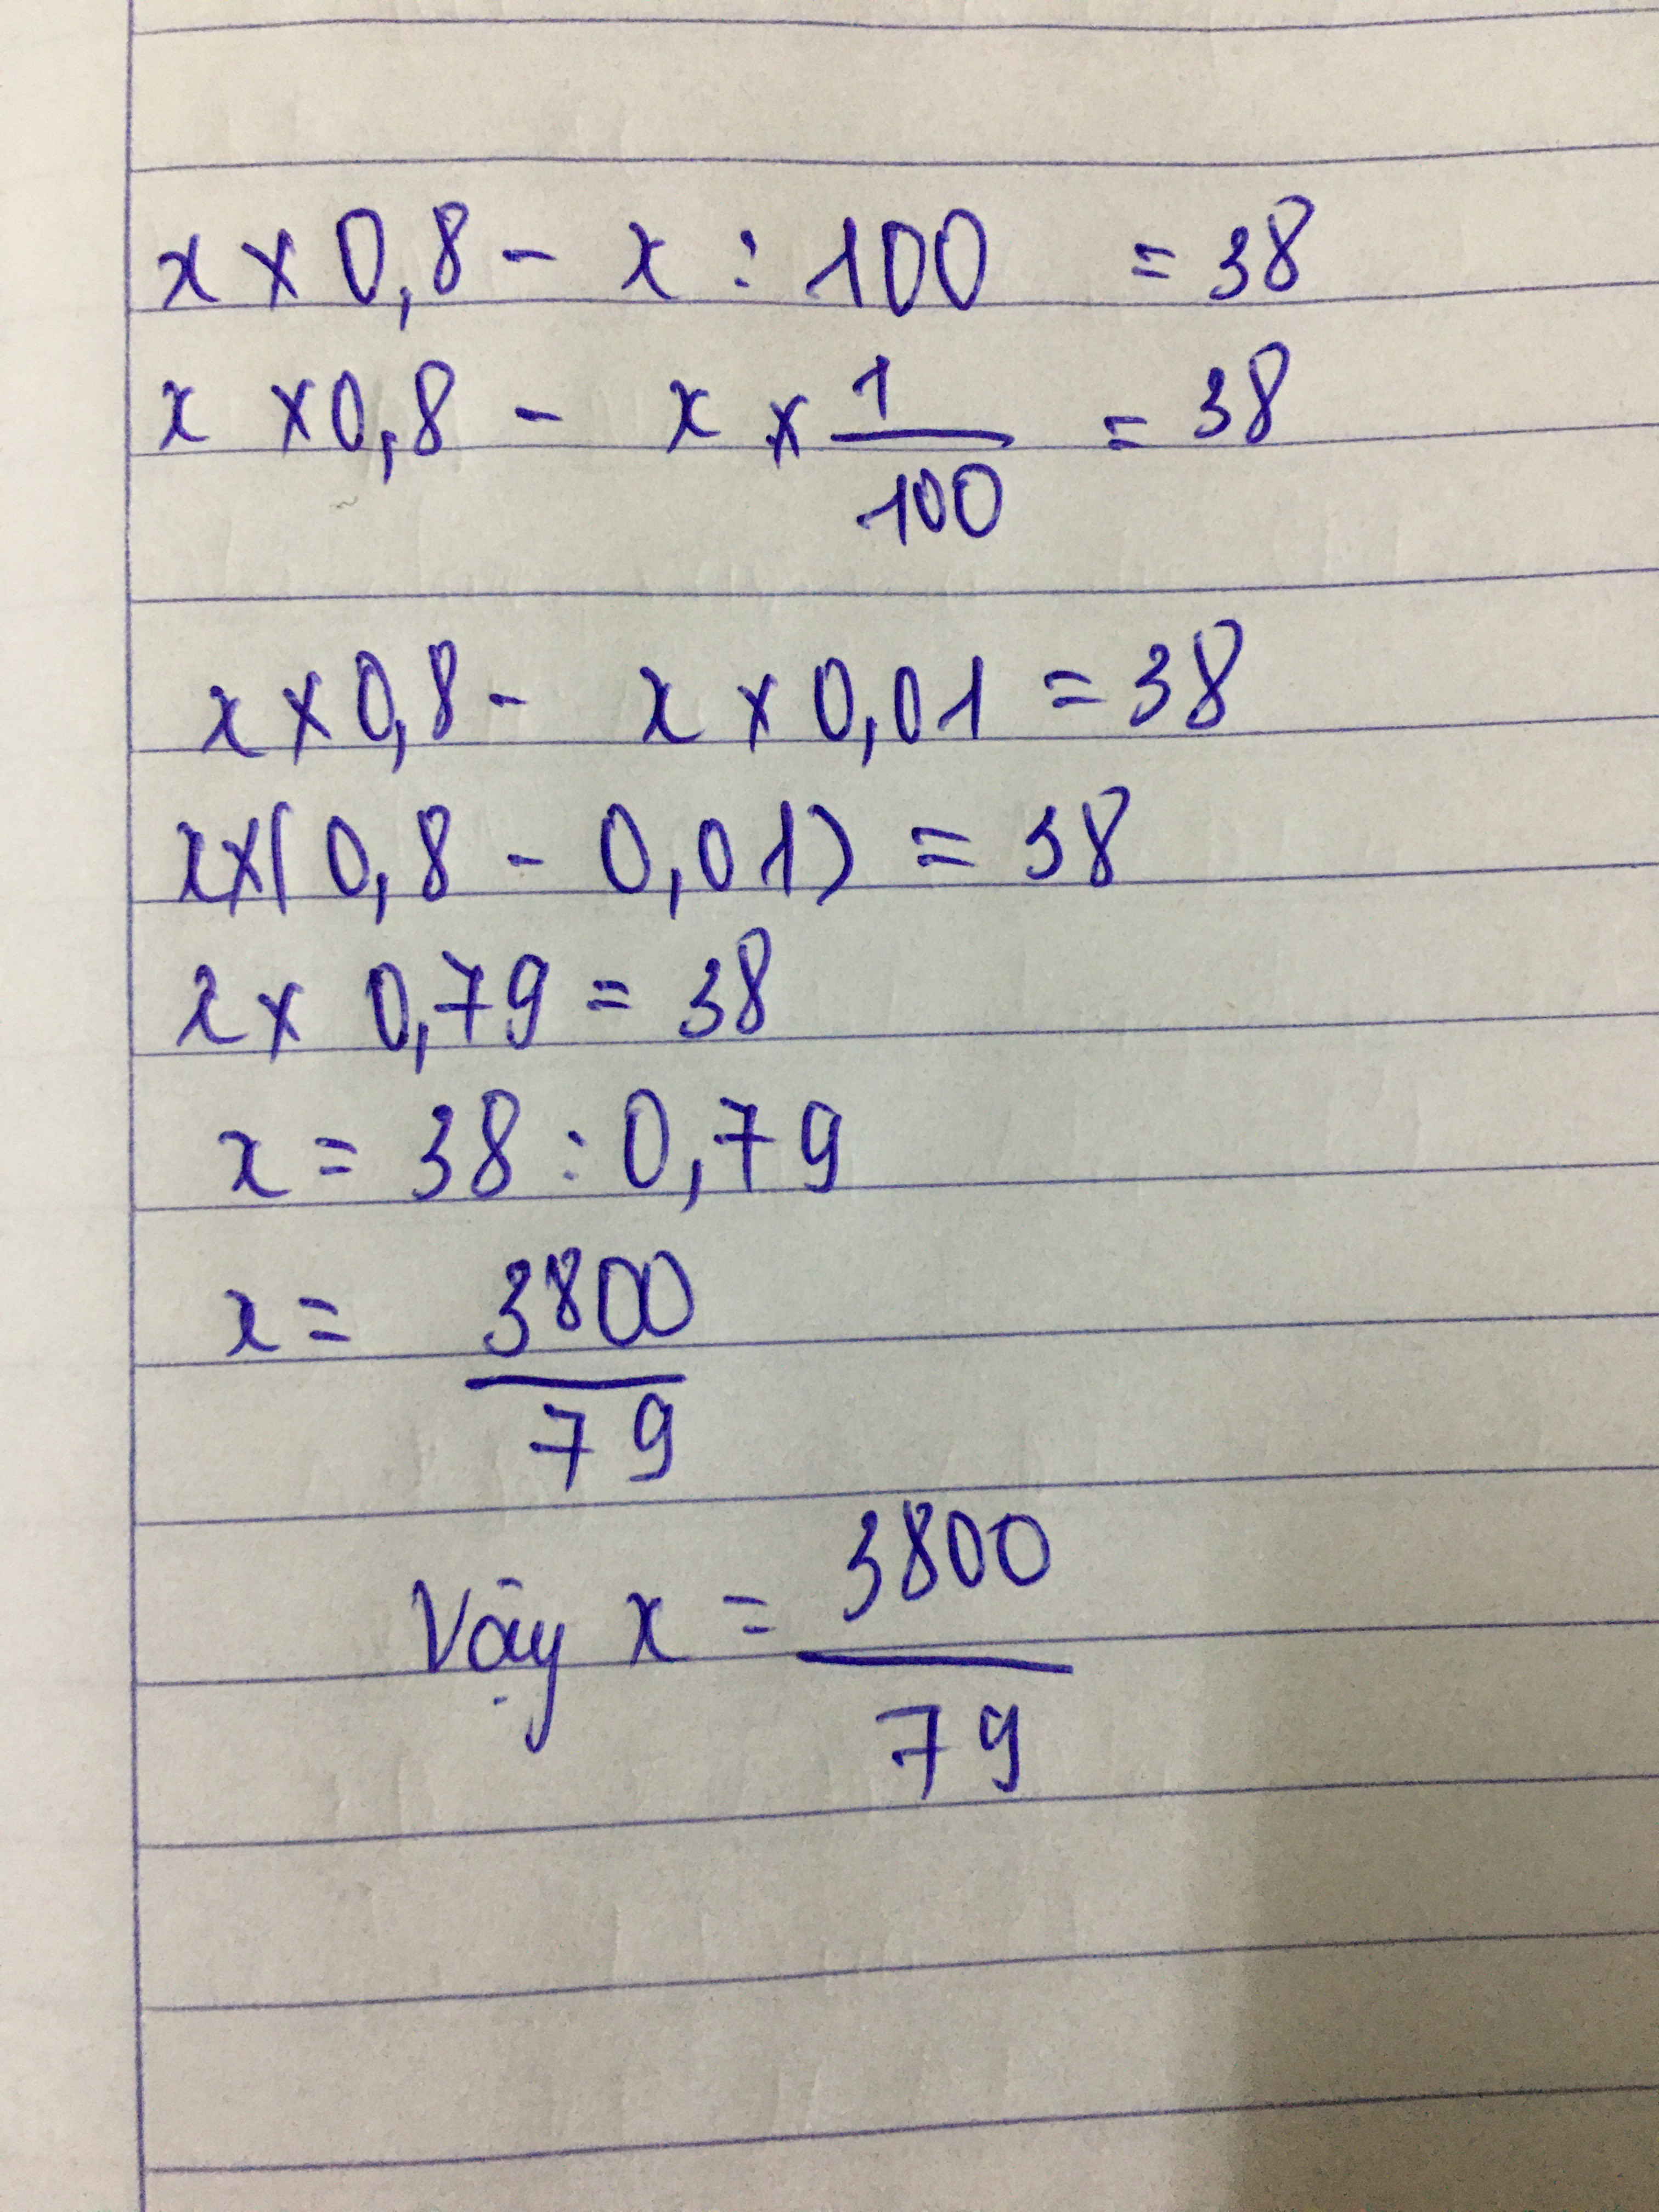 x × 0,8 - x : 100 = 38
x × 0,8 - x × 1/100 = 38
x × 0,8 - x × 0,01 = 38
x × (0,8 - 0,01) = 38
x × 0,79 = 38
x = 38 : 0,79
x = 3800/79
Vậy x = 3800/79